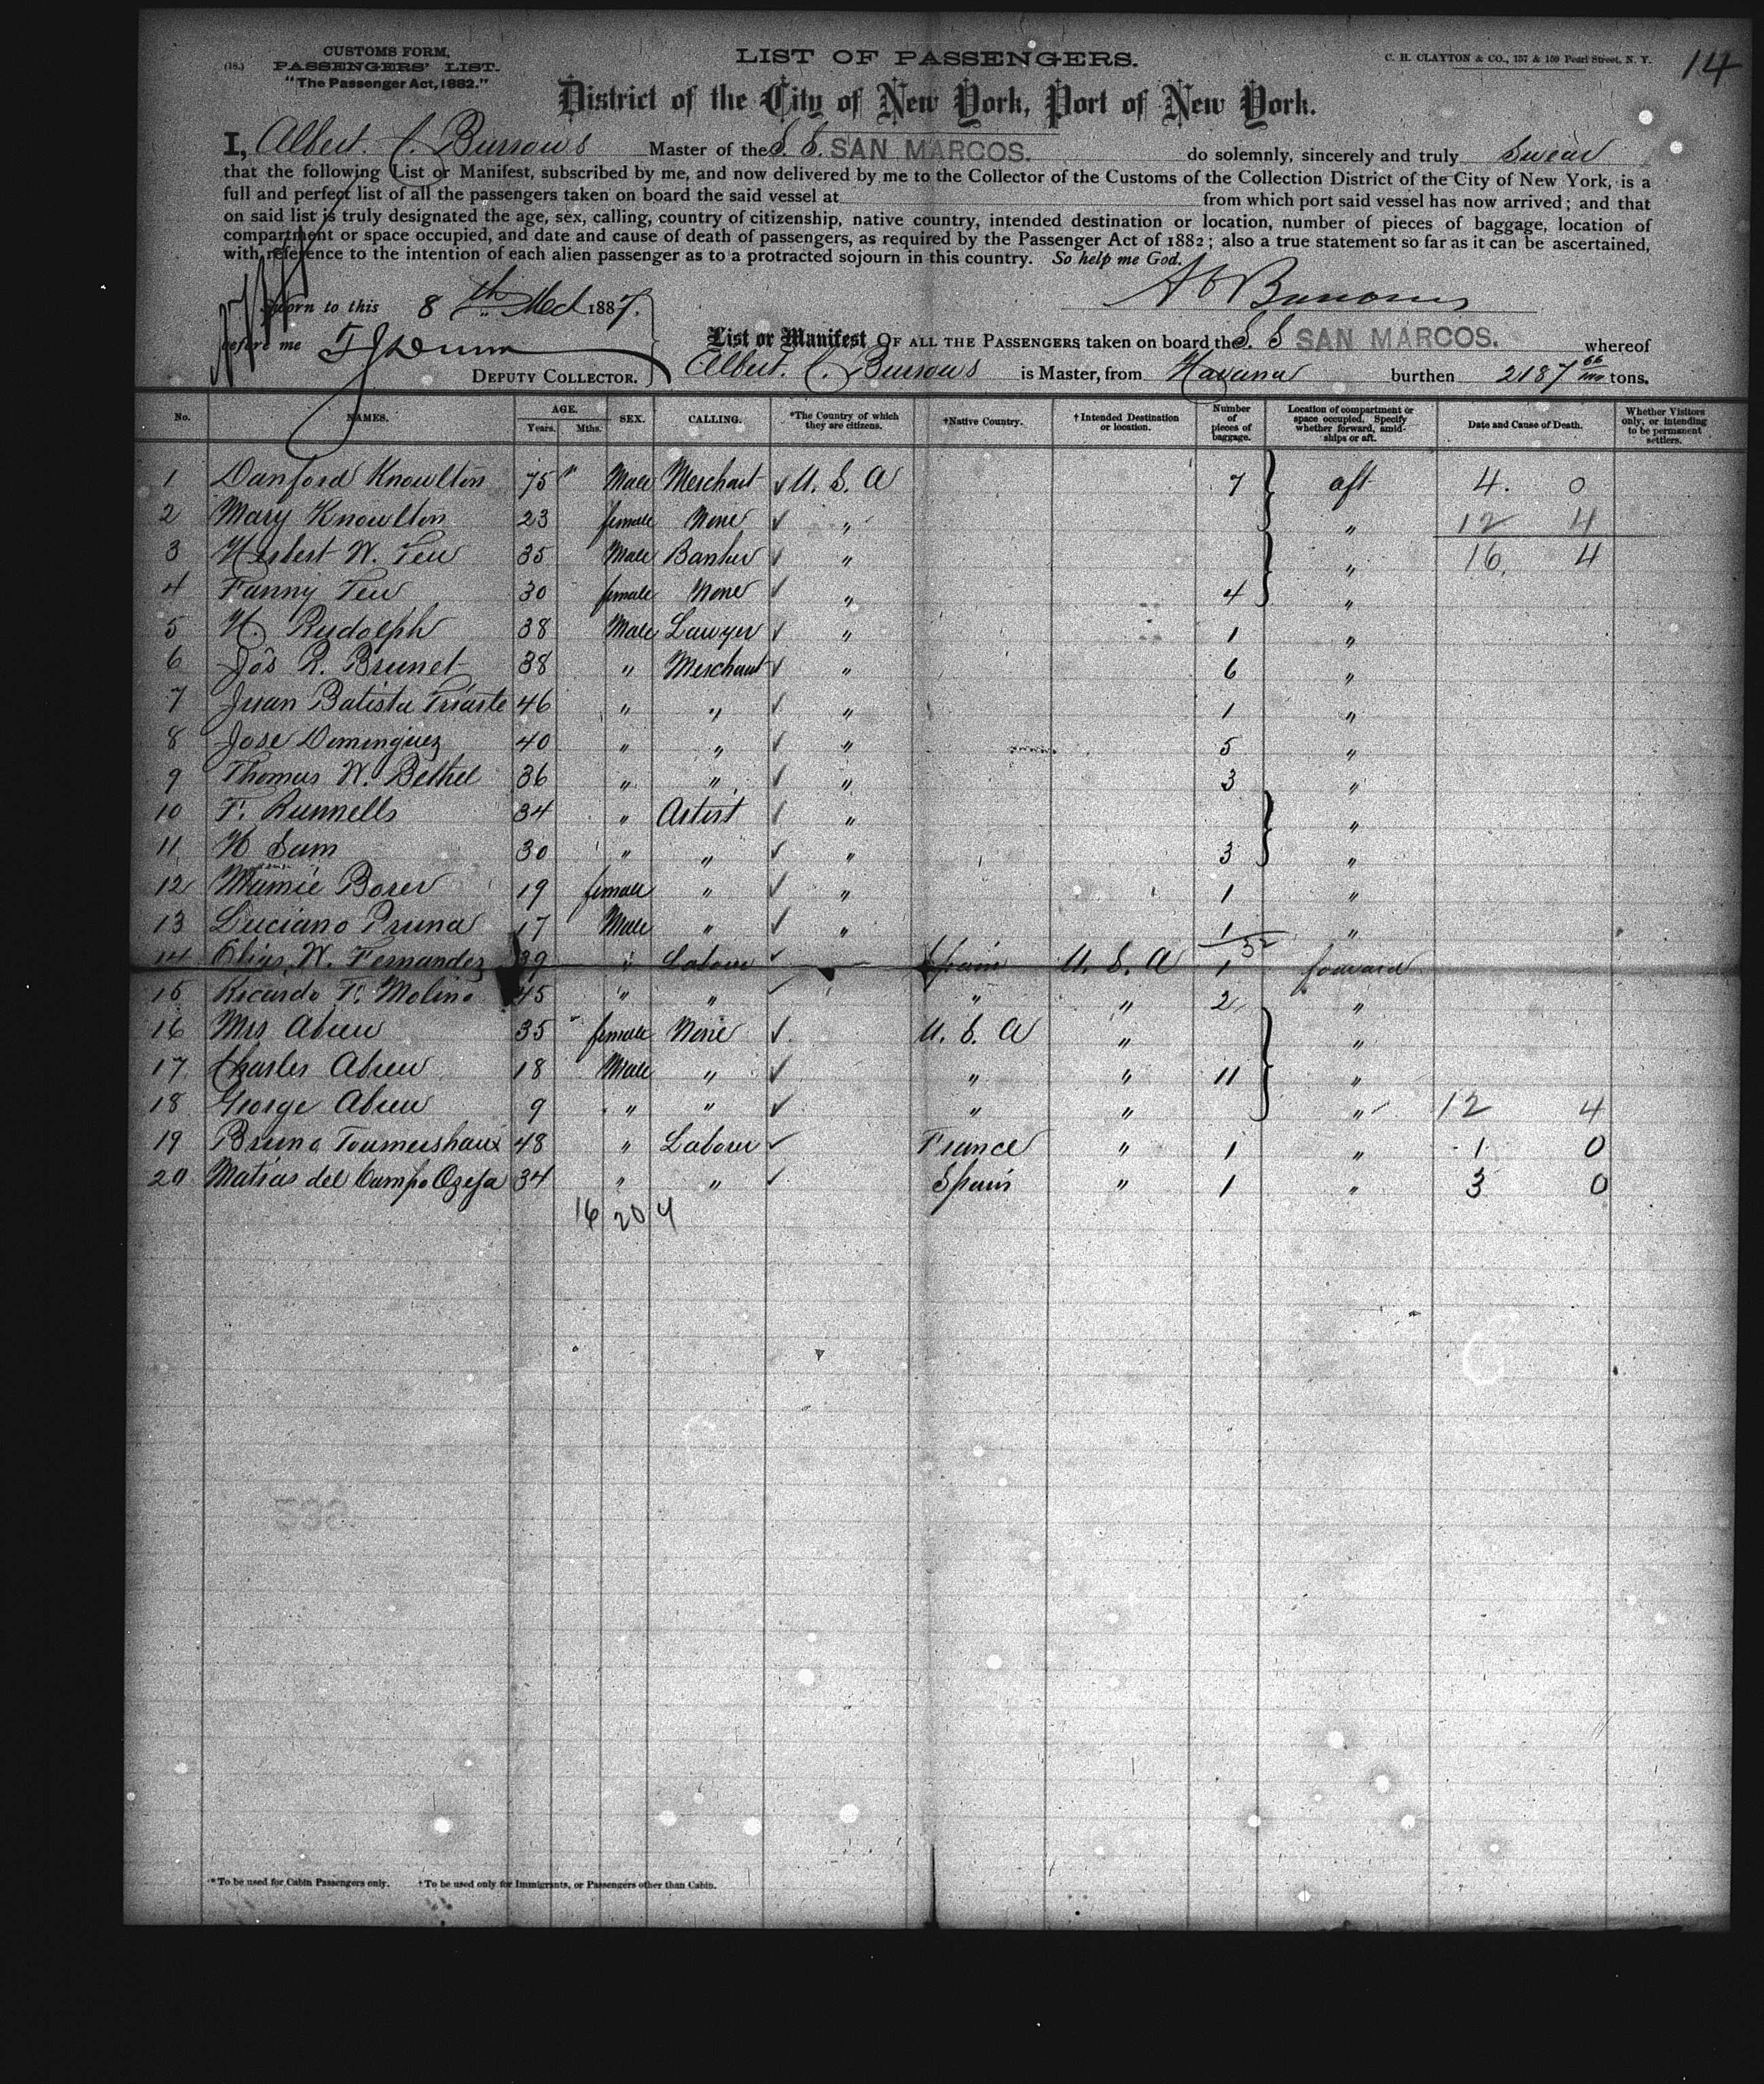 14
CUSTOMS FORM,
(18.) PASSENGERS' LIST.
"The Passenger Act, 1882."
LIST OF PASSENGERS.
C. H. CLAYTON & CO., 157 & 159 Pearl Street, N. Y.
District of the City of New York, Port of New York.
I, Albert. C. Burrows Master of the S. S. SAN MARCOS. do solemnly, sincerely and truly swear
that the following List or Manifest, subscribed by me, and now delivered by me to the Collector of the Customs of the Collection District of the City of New York, is a
full and perfect list of all the passengers taken on board the said vessel at from which port said vessel has now arrived; and that
on said list is truly designated the age, sex, calling, country of citizenship, native country, intended destination or location, number of pieces of baggage, location of
compartment or space occupied, and date and cause of death of passengers, as required by the Passenger Act of 1882; also a true statement so far as it can be ascertained,
with reference to the intention of each alien passenger as to a protracted sojourn in this country. So help me God.
A C Burrows
Sworn to this 8th 1887.
before me
DEPUTY COLLECTOR.
List or Manifest OF ALL THE PASSENGERS taken on board the S. S SAN MARCOS. whereof
Albert. C. Burrows is Master, from Havana burthen 2187 66/100 tons.
No. NAMES. AGE. Years. Mths. SEX. CALLING. *The Country of which they are citizens. †Native Country. †Intended Destination or location. Number of pieces of baggage. Location of compartment or space occupied. Specify whether forward, amidships or aft. Date and Cause of Death. Whether Visitors only, or intending to be permanent settlers.
1 Danford Knowlton 75 " Male Merchant ✓ U. S. A 7 aft 4. 0
2 Mary Knowlton 23 female None ✓ " " 12 4
3 Herbert W. Tew 35 Male Banker ✓ " " 16, 4
4 Fanny Tew 30 female None ✓ " 4 "
5 H. Rudolph 38 Male Lawyer ✓ " 1 "
6 Jos R. Brunet 38 " Merchant ✓ " 6 "
7 Juan Batista Triarte 46 " " ✓ " 1 "
8 Jose Dominguez 40 " " ✓ " 5 "
9 Thomas W. Bethel 36 " " ✓ " 3 "
10 F. Runnells 34 " Artist ✓ " "
11 H Sam 30 " " ✓ " 3 "
12 Mamie Borer 19 female " ✓ " 1 "
13 Luciano Pruna 17 Male " ✓ " 1 "
32
14 Elias W. Fernandez 39 " Labour ✓ Spain U. S. A 1 forward
15 Ricardo F. Molino 45 " " ✓ " " 2 "
16 Mrs Abreu 35 " female None ✓ U. S. A " "
17 Charles Abreu 18 Male " ✓ " " 11 "
18 George Abreu 9 " " ✓ " " " 12 4
19 Bruno 48 " Laborer ✓ France " 1 " 1 0
20 Matias del Campo 34 " " ✓ Spain " 1 " 3 0
16 20 4
* To be used for Cabin Passengers only. † To be used only for Immigrants, or Passengers other than Cabin.